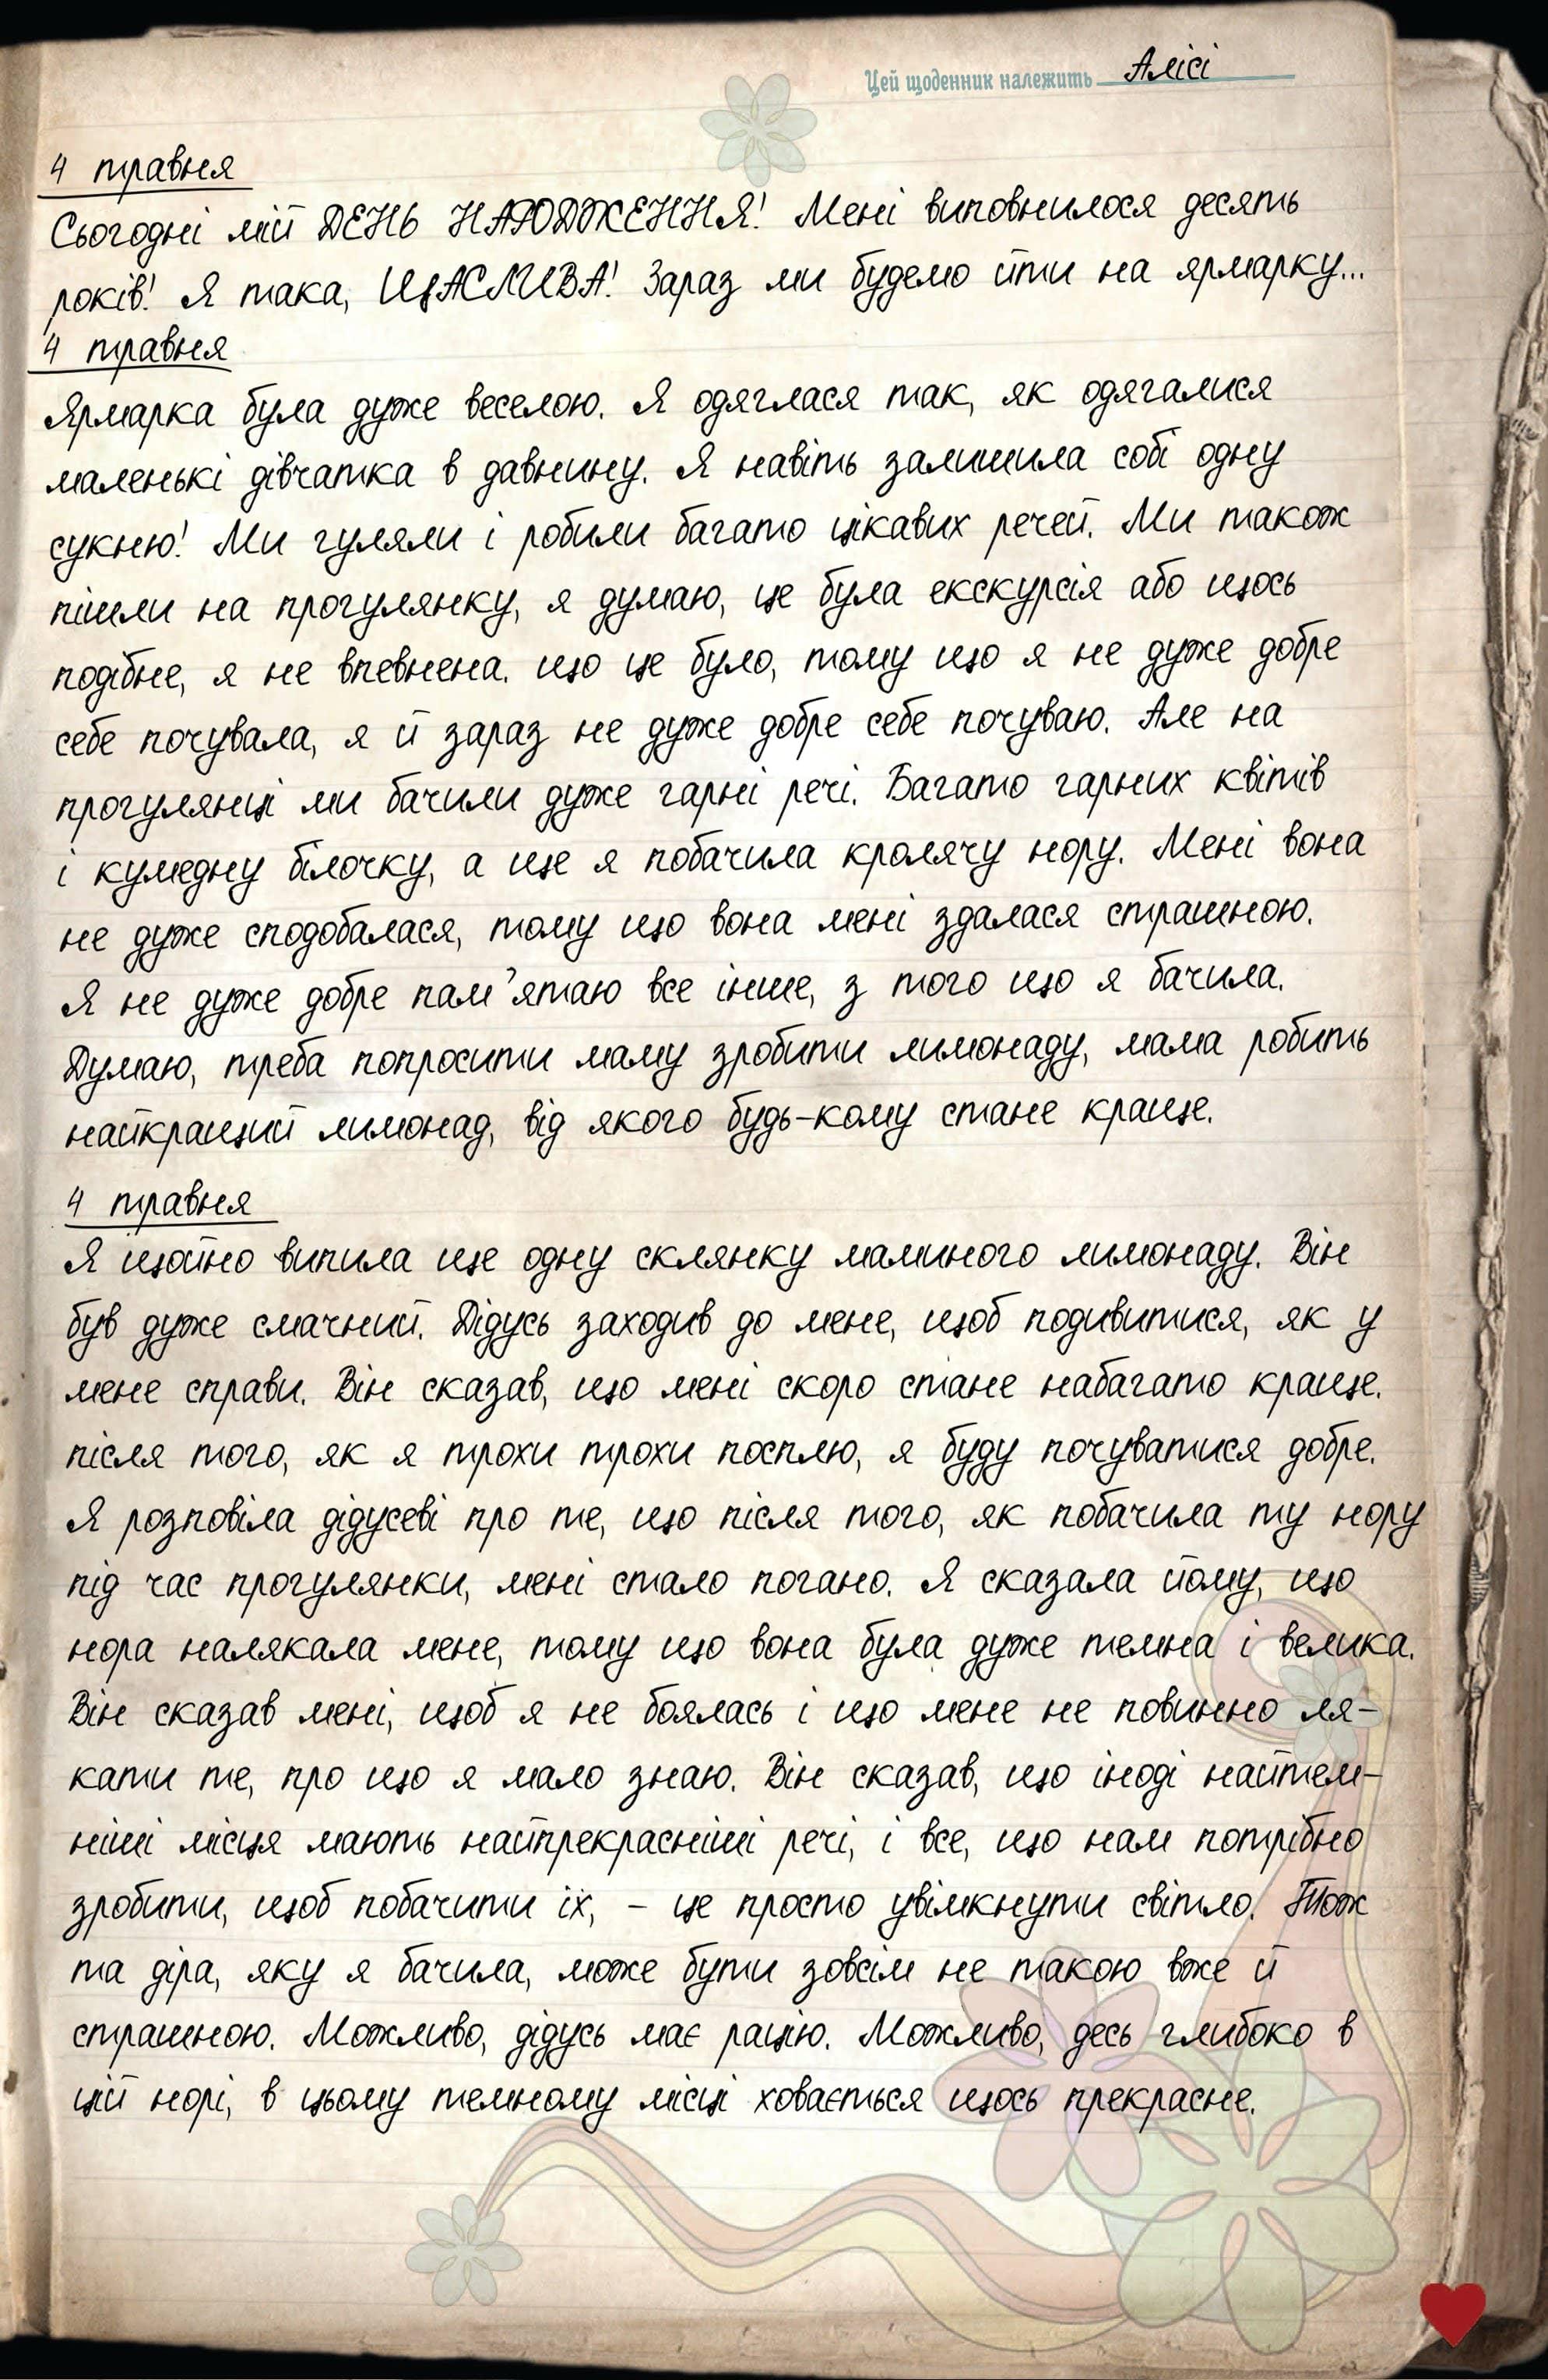 Цей щоденник належить Алісі
4 травня
Сьогодні мій ДЕНЬ НАРОДЖЕННЯ! Мені виповнилося десять
років! Я така, ЩАСЛИВА! Зараз ми будемо йти на ярмарку...
4 травня
Ярмарка була дуже веселою. Я одяглася так, як одягалися
маленькі дівчатка в давнину. Я навіть залишила собі одну
сукню! Ми гуляли і робили багато цікавих речей. Ми також
пішли на прогулянку, я думаю, це була екскурсія або щось
подібне, я не впевнена. що це було, тому що я не дуже добре
себе почувала, я й зараз не дуже добре себе почуваю. Але на
прогулянці ми бачили дуже гарні речі. Багато гарних квітів
і кумедну білочку, а ще я побачила кролячу нору. Мені вона
не дуже сподобалася, тому що вона мені здалася страшною.
Я не дуже добре пам'ятаю все інше, з того що я бачила.
Думаю, треба попросити маму зробити лимонаду, мама робить
найкращий лимонад, від якого будь-кому стане краще.
4 травня
Я щойно випила ще одну склянку маминого лимонаду. Він
був дуже смачний. Дідусь заходив до мене, щоб подивитися, як у
мене справи. Він сказав, що мені скоро стане набагато краще.
після того, як я трохи трохи посплю, я буду почуватися добре.
Я розповіла дідусеві про те, що після того, як побачила ту нору
під час прогулянки, мені стало погано. Я сказала йому, що
нора налякала мене, тому що вона була дуже темна і велика.
Він сказав мені, щоб я не боялась і що мене не повинно ля-
кати те, про що я мало знаю. Він сказав, що іноді найтем-
ніші місця мають найпрекрасніші речі, і все, що нам потрібно
зробити, щоб побачити їх, - це просто увімкнути світло. Тож
та діра, яку я бачила, може бути зовсім не такою вже й
страшною. Можливо, дідусь має рацію. Можливо, десь глибоко в
цій норі, в цьому темному місці ховається щось прекрасне.